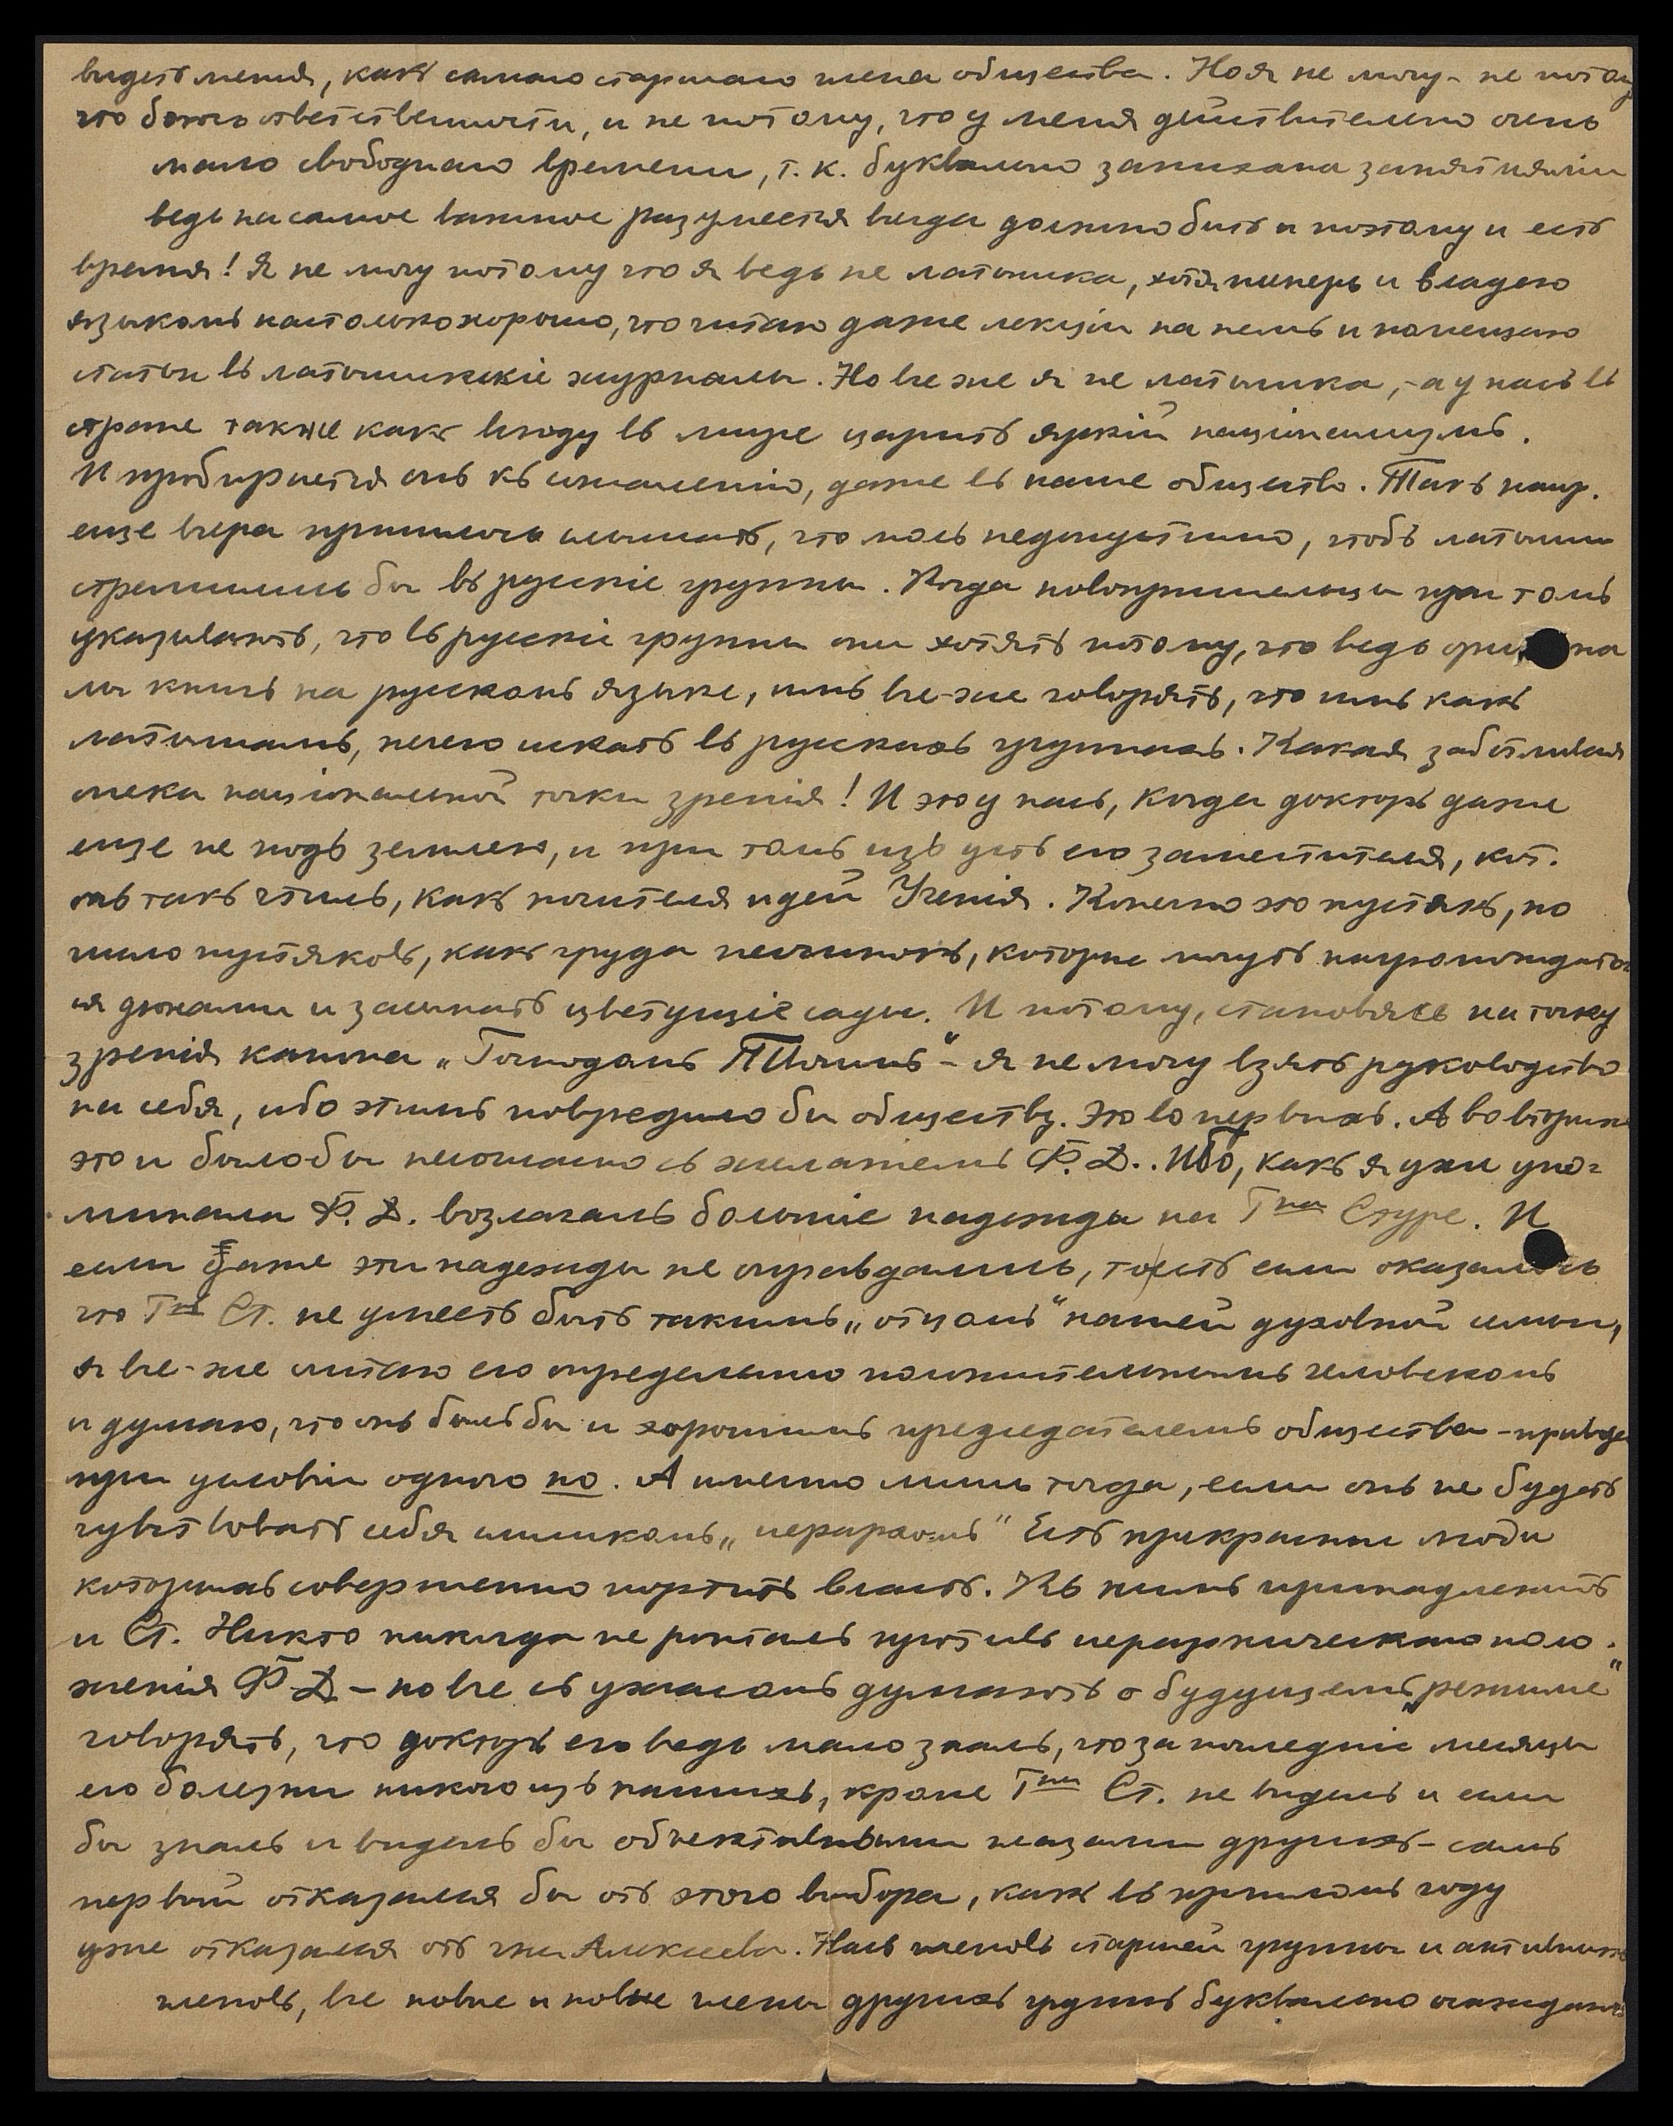 видетъ меня, какъ самаго старшаго члена общества. Но я не могу - не потому
что боюсь ответственности, и не потому, что у меня действительно очень
мало свободнаго времени, т. к. буквально запихана занятиями
ведь на самое важное разумеется всегда должно быть и поэтому и есть
время! Я не могу потому что я ведь не латышка, хотя теперь и владею
языкомъ настолько хорошо, что читаю даже лекціи на немъ и помещаю
статьи въ латышскіе журналы. Но все же я не латышка, - а у насъ въ
стране также какъ всюду въ мире царитъ яркій націонализмъ.
И пробирается онъ къ сожаленію, даже въ наше общество. Такъ напр.
еще вчера пришлось слышать, что молъ недопустимо, чтобъ латыши
стремились бы въ русскіе группы. Когда новопришельцы при томъ
указываютъ, что въ русскіе группы они хотятъ потому, что ведь ориг на
лы книгъ на русскомъ языке, имъ все-же говорятъ, что имъ какъ
латышамъ, нечего искать въ русскихъ группахъ. Какая заботливая
опека національной точки зренія! И это у насъ, когда докторъ даже
еще не подъ землею, и при томъ изъ устъ его заместителя, кот.
онъ такъ чтилъ, какъ носителя идей Ученія. Конечно это пустякъ, но
мало пустяковъ, какъ груда песчинокъ, которые могутъ нагромождать
ся дюнами и засыпать цветущіе сады. И потому, становясь на точку
зренія канона „Господомъ Твоимъ" - я не могу взять руководство
на себя, ибо этимъ повредило бы обществу. Это во первыхъ. А во вторыхъ
это и было бы несогласно съ желаніемъ Ф. Д.. Ибо, какъ я уже упо-
минала Ф. Д. возлагалъ большіе надежды на Гна Стуре. И
если даже эти надежды не оправдались, то есть если оказалось
что Гнъ Ст. не умеетъ быть такимъ „отцомъ" нашей духовной семьи,
я все-же считаю его определенно положительнымъ человекомъ
и думаю, что онъ былъ бы и хорошимъ председателемъ общества - правда
при условіи одного но. А именно лишь тогда, если онъ не будетъ
чувствовать себя слишкомъ „иерархомъ" Есть прекрасные люди
которыхъ совершенно портитъ власть. Къ нимъ принадлежитъ
и Ст. Никто никогда не ропталъ противъ иерархическаго поло-
женія Ф. Д - но все съ ужасомъ думаютъ о будущемъ „режиме"
говорятъ, что докторъ его ведь мало зналъ, что за последніе месяцы
его болезни никого изъ нашихъ, кроме Гна Ст. не виделъ и если
бы зналъ и виделъ бы объективными глазами другихъ - самъ
первый отказался бы отъ этого выбора, какъ въ прошломъ году
уже отказался отъ гжи Алексеевы. Насъ членовъ старшей группы и активныхъ
членовъ, все новые и новые члены другихъ группъ буквально осаждаютъ